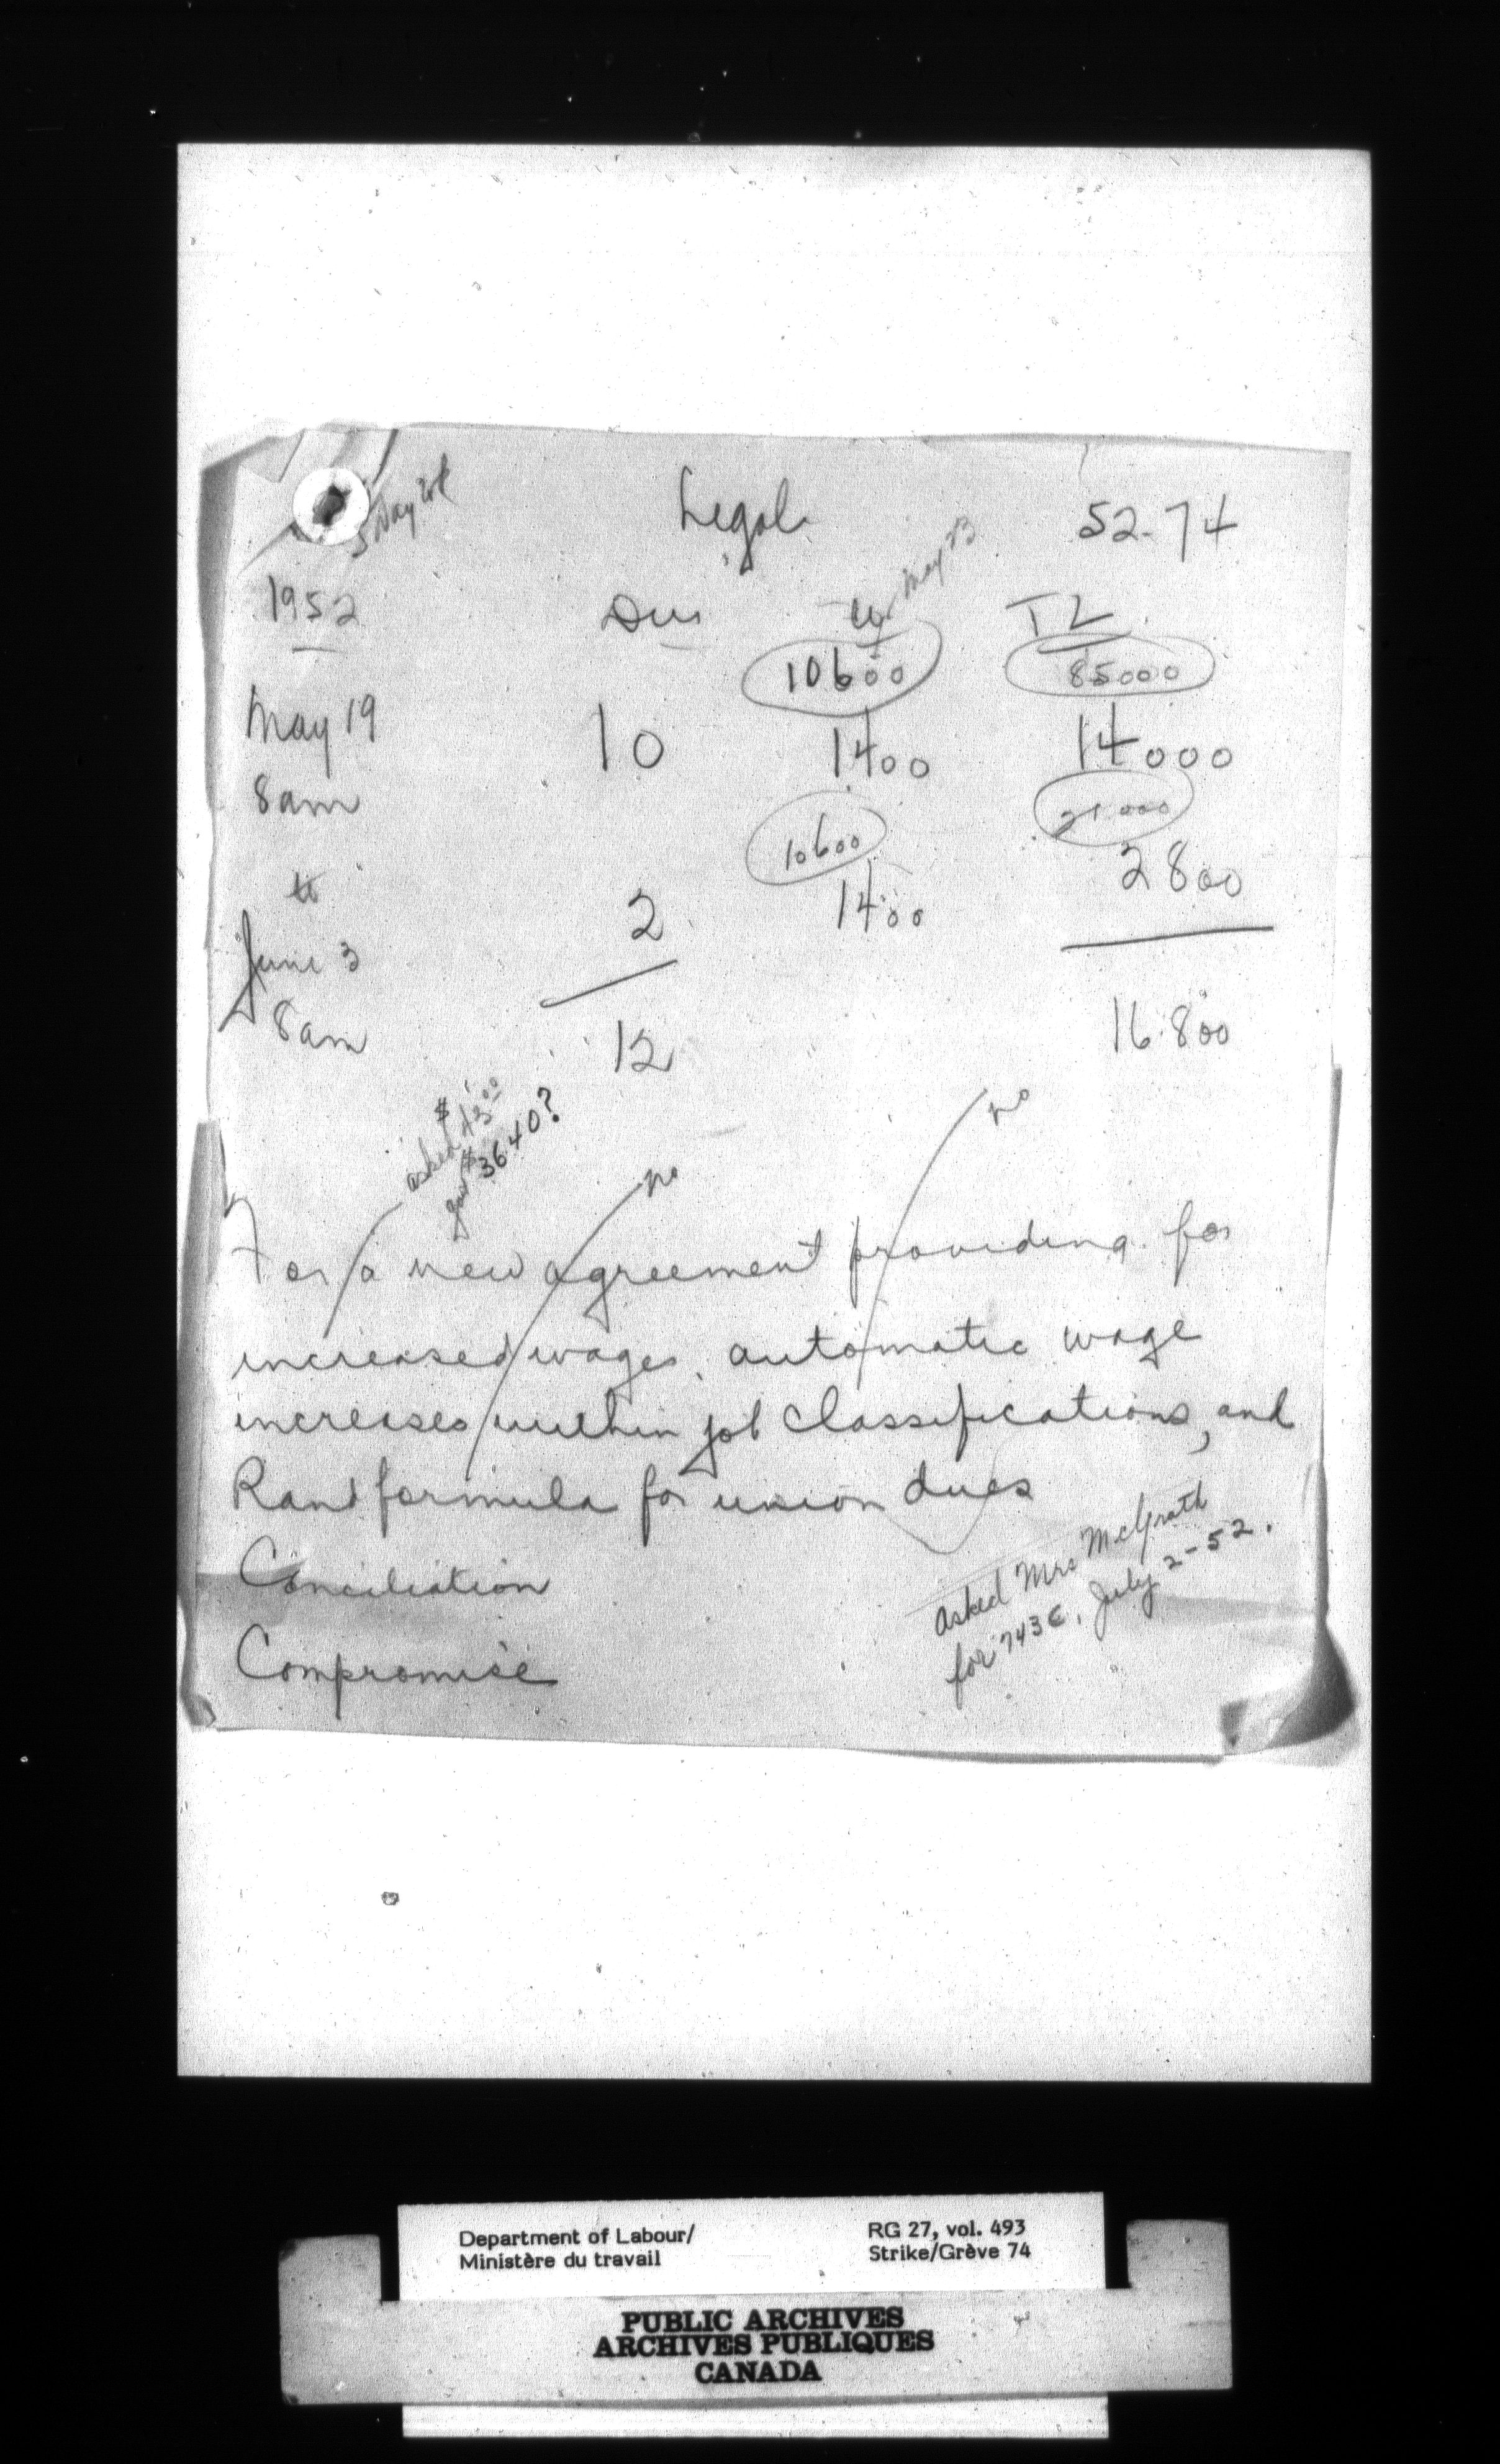 5 day wk
Legal
52-74
1952
Dur
Wr
May 23
TL
10600
85000
May 19
10
1400
14000
8am
10600
21000
to
2
1400
2800
June 3
8am
12
16800
asked $45.00
got $36.40?
no
no
For a new agreement providing for
increased wages, automatic wage
increases within job classifications, and
Rand formula for union dues
Conciliation
Compromise
Asked Mrs McGrath
for 743E, July 2-52.
Department of Labour/
Ministère du travail
RG 27, vol. 493
Strike/Grève 74
PUBLIC ARCHIVES
ARCHIVES PUBLIQUES
CANADA